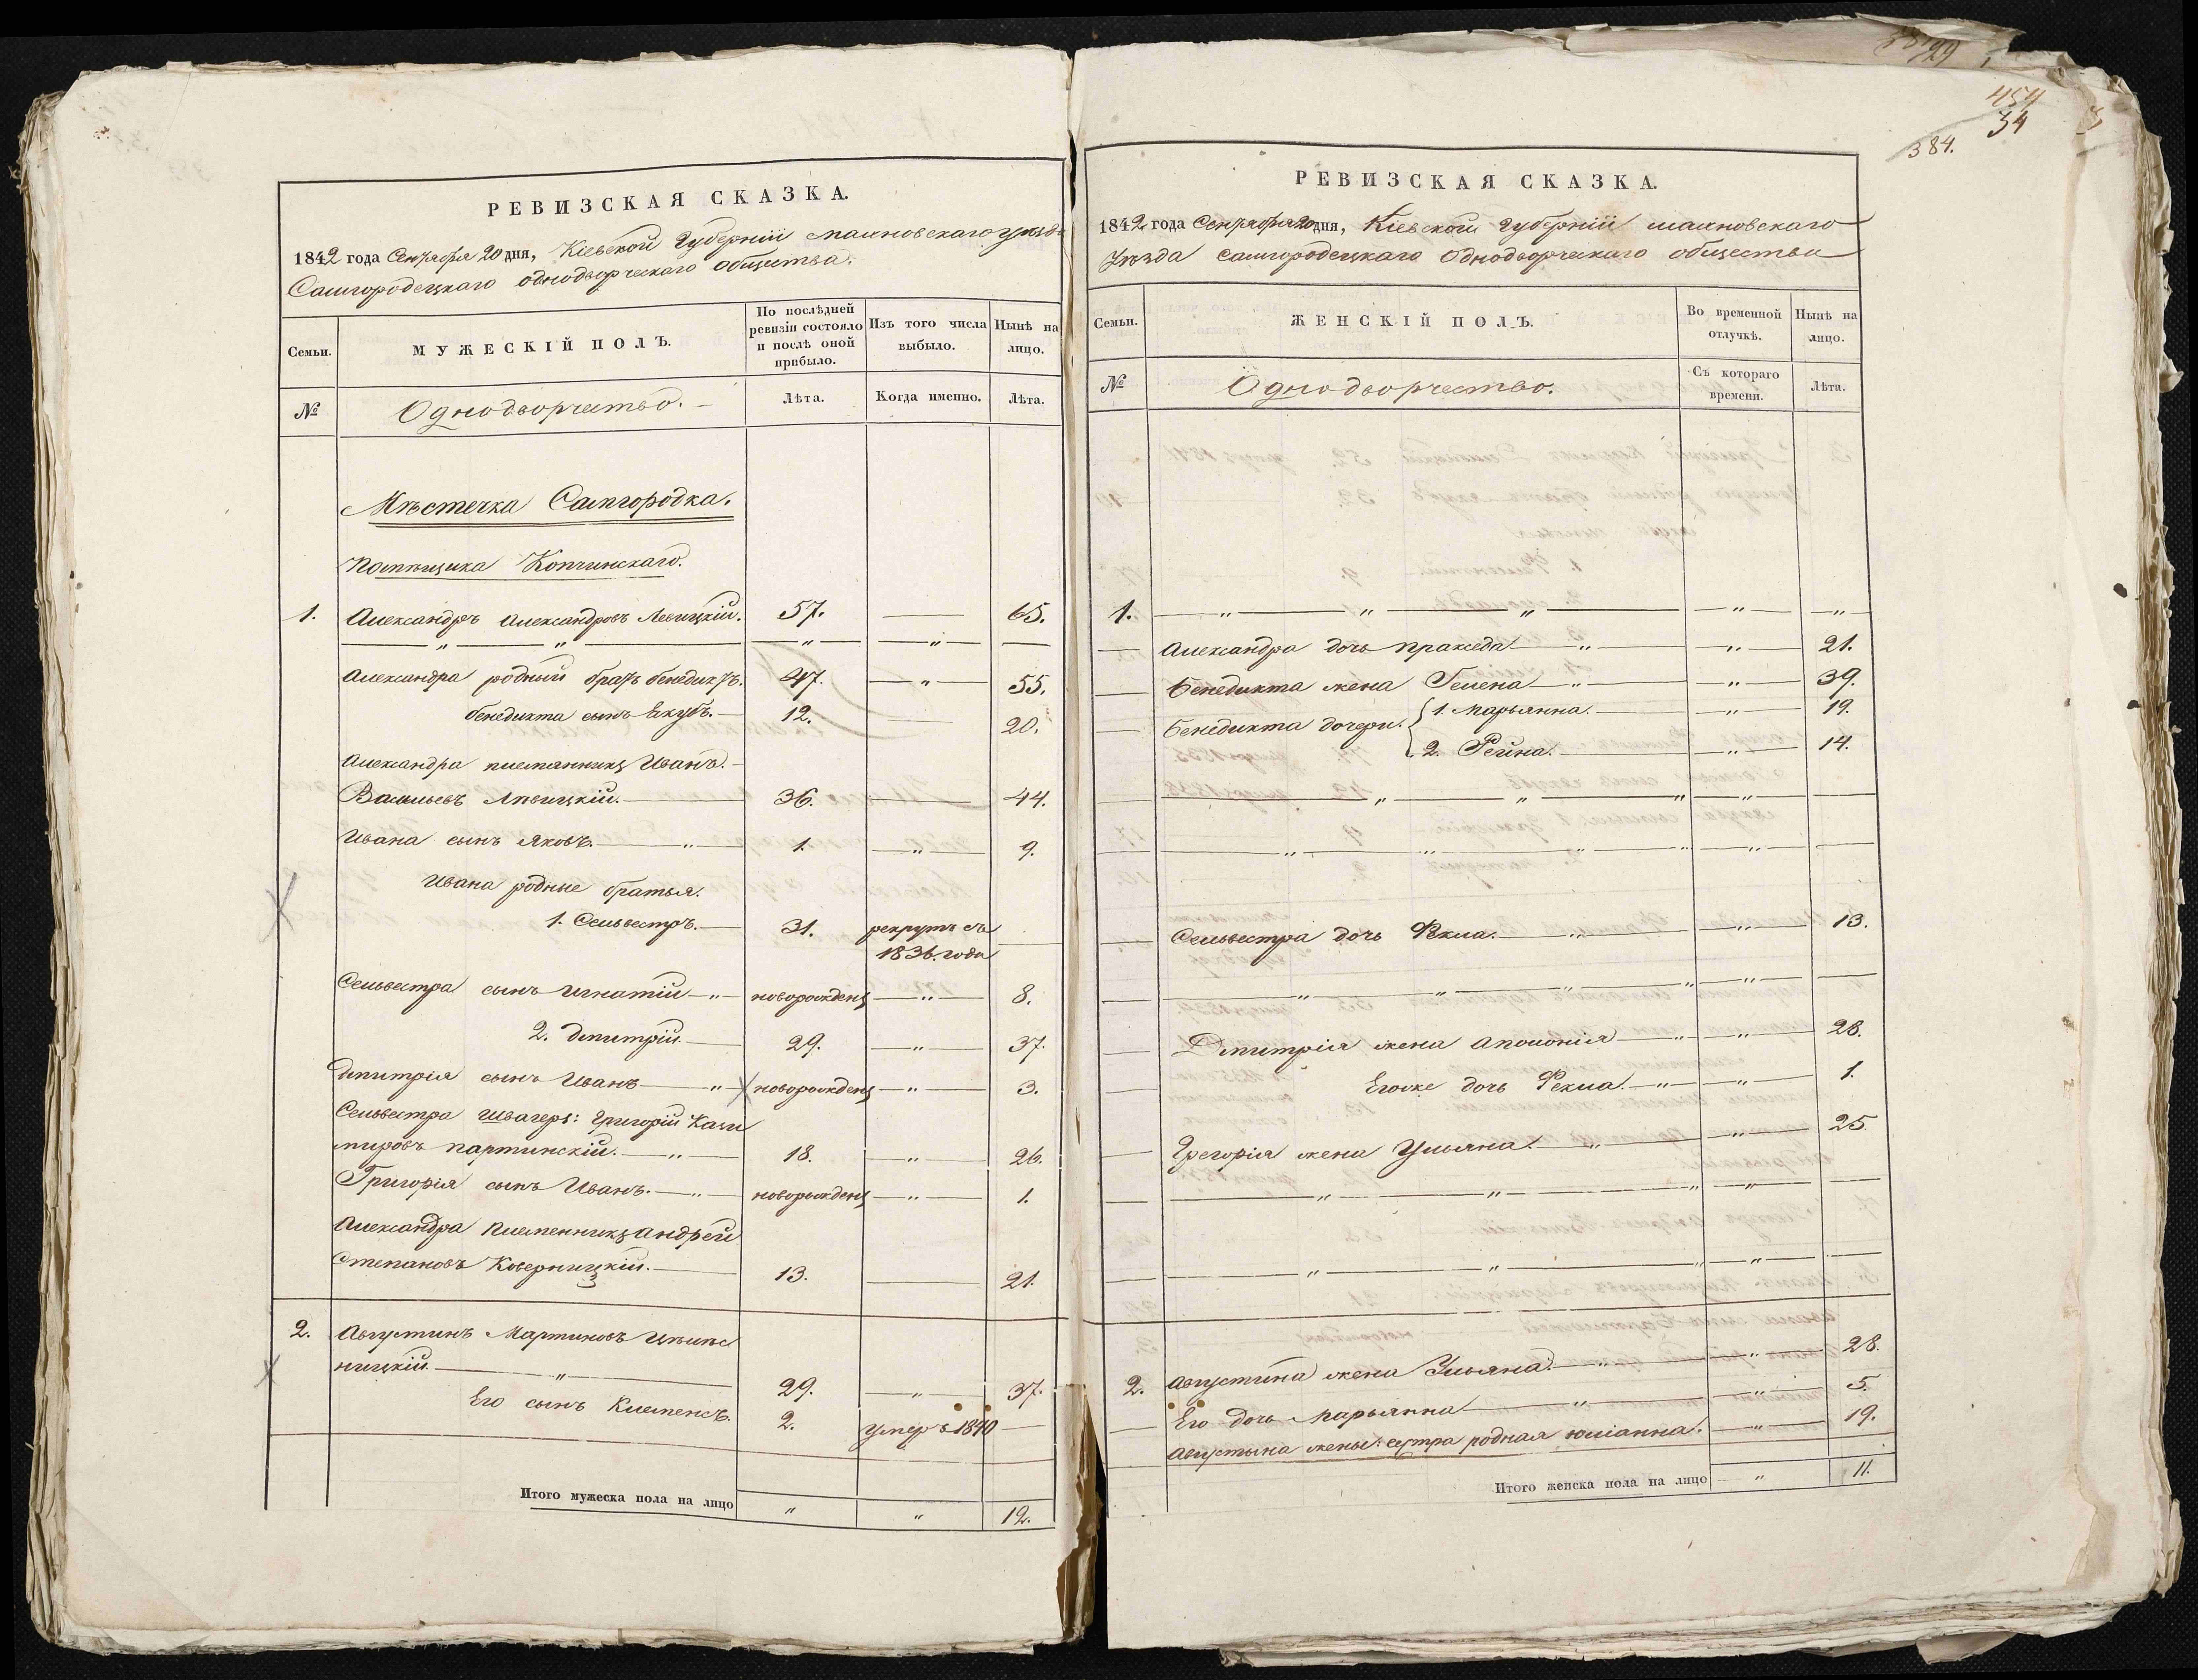 РЕВИЗСКАЯ СКАЗКА.
1842 года Сентября 20 дня, Кіевской Губерніи Махновскаго уѣзда
Самгородецкаго однодворческаго общества.
Семьи.
МУЖЕСКІЙ ПОЛЪ.
По послѣдней ревизіи состояло и послѣ оной прибыло.
Изъ того числа выбыло.
Нынѣ на лицо.
№
Однодворчество.
Лѣта.
Когда именно.
Лѣта.
Мѣстечка Самгородка.
Помѣщика Копчинскаго.
1. Александръ Александровъ Левицкій. 57. 65.
Александра родный братъ бенедиктъ. 47. „ 55.
бенедикта сынъ Якубъ. 12. 20.
Александра племянникъ Иванъ.
Васильевъ Лѣвицкій. 36. 44.
Ивана сынъ Яковъ. „ 1. „ 9.
Ивана родные братья.
1. Сельвестръ. 31. рекрутъ съ
1836. года
Сельвестра сынъ Игнатій „ новорожденъ „ 8.
2. Дмитрій. 29. „ 37.
Дмитрія сынъ Иванъ „ новорожденъ „ 3.
Сельвестра швагеръ: Григорій Кази
мировъ Партинскій. „ 18. „ 26.
Григорія сынъ Иванъ. „ новорожденъ „ 1.
Александра племенникъ Андрей
Степановъ Коверницкій. 13. 21.
2. Августинъ Мартиновъ
ницкій. „ 29. „ 37.
Его сынъ Клеменсъ. 2. умеръ 1840
Итого мужеска пола на лицо „ „ 12.
384.
454
34
РЕВИЗСКАЯ СКАЗКА.
1842 года Сентября 20 дня, Кіевской Губерніи Махновскаго
Уѣзда Самгородецкаго Однодворческаго общества
Семьи.
ЖЕНСКІЙ ПОЛЪ.
Во временной отлучкѣ.
Нынѣ на лицо.
№
Однодворчество.
Съ котораго времени.
Лѣта.
1. „ „ „ „ „
Александра дочь Пракседа „ „ 21.
Бенедикта жена Гелена „ „ 39.
Бенедикта дочери. 1. Марьянна. „ 19.
2. Рейна. „ 14.
„ „ „ „
„ „ „ „
Сельвестра дочь Фекла. „ „ 13.
„ „ „ „ „
Дмитрія жена Аполонія „ „ 28.
Егоже дочь Фекла. „ „ 1.
Грегорія жена Ульяна. „ „ 25.
„ „ „ „
„ „ „ „
2. Августина жена Ульяна. „ „ 28.
Его дочь Марьянна „ „ 5.
Августына жены: сестра родная Юліанна. „ 19.
Итого женска пола на лицо „ 11.